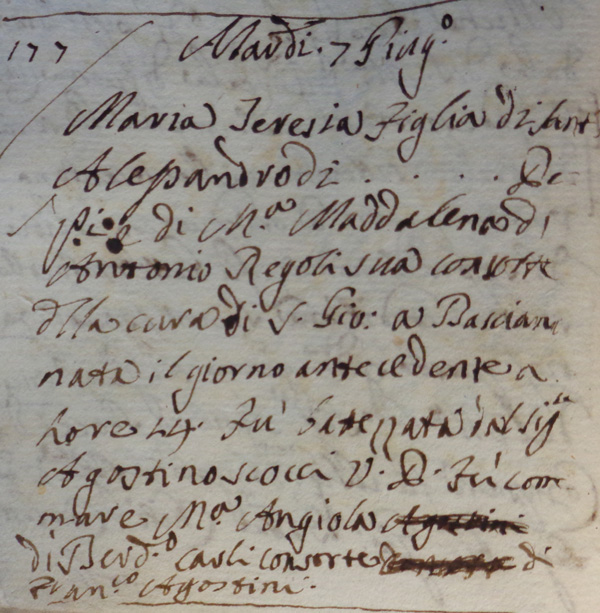 177
Mardi. 7 Giug.o
Maria Teresia Figlia di Ant
Alessandro di . . . . Be-
di M.a Maddalena di
Antonio Regoli sua consorte
dlla cura di S. Gio: a Bascian
nata il giorno antecedente a
hore 24. Fú batezzata dal Sig.
Agostino scocci V. B. Fú com-
mare M.a Angiola Agostini
di Berd.o Carli consorte di
Fran.co Agostini.